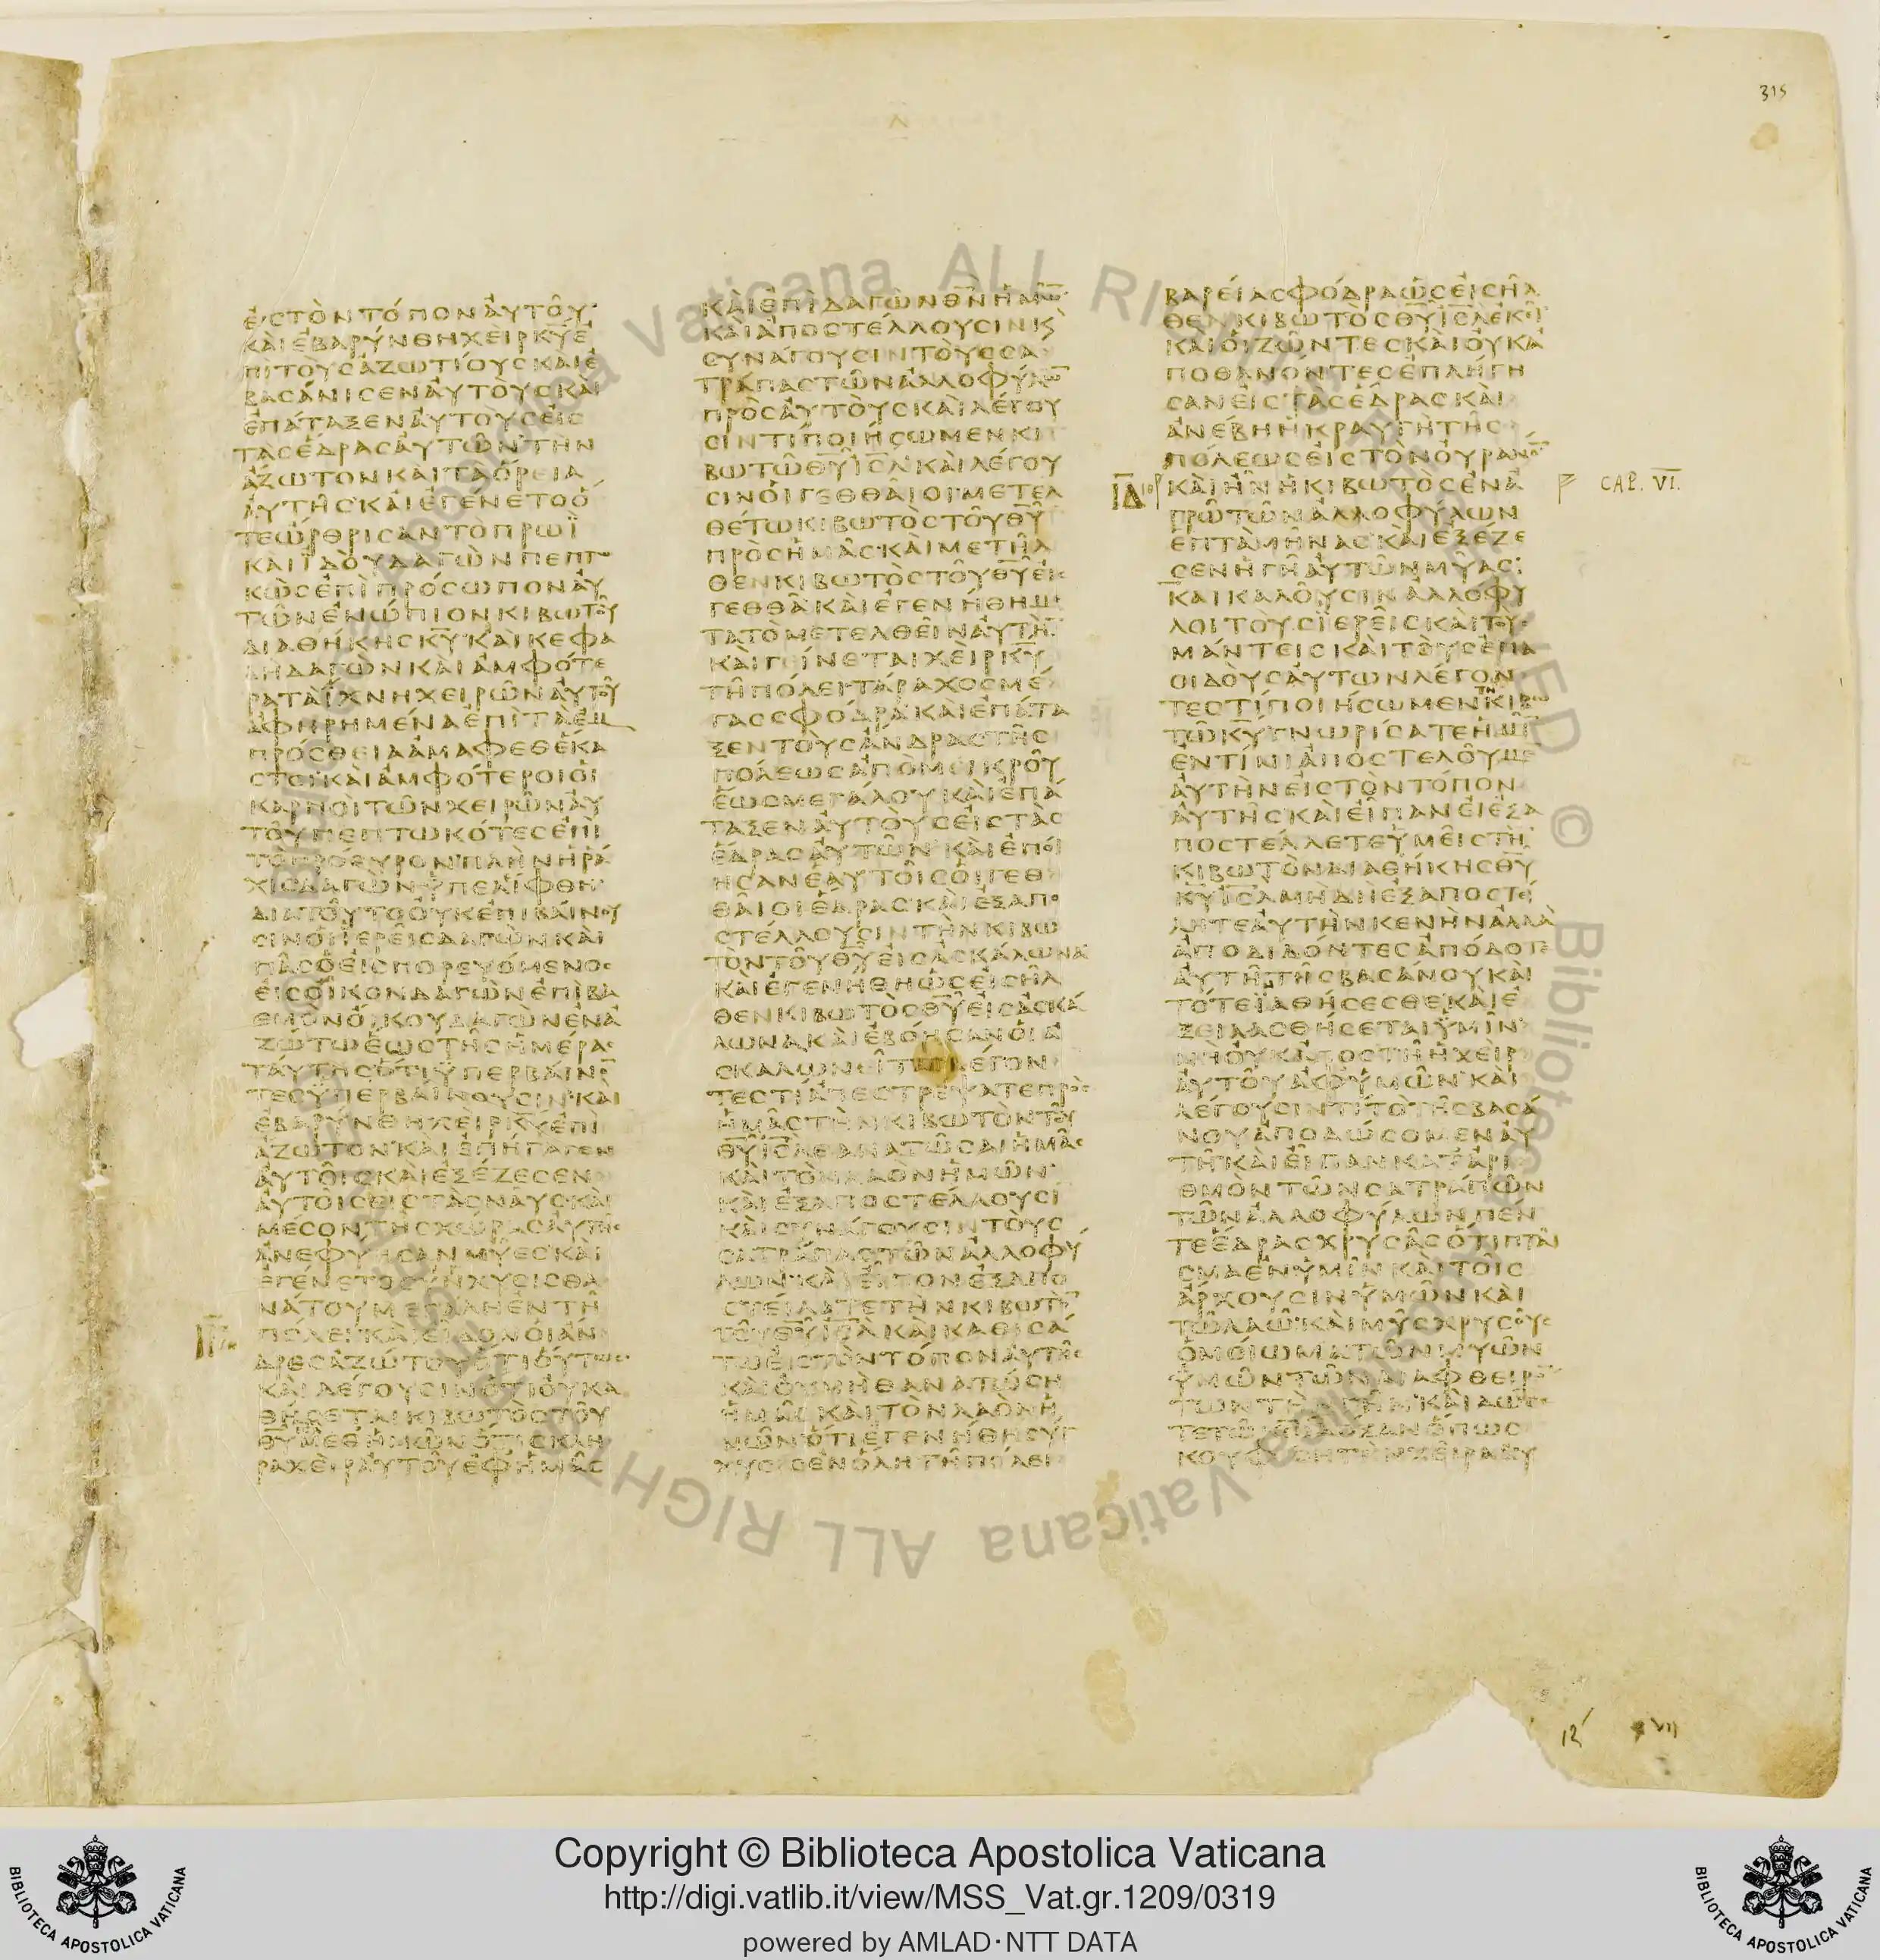 315
ΕΙСΤΟΝΤΟΠΟΝΑΥΤΟΥ
ΚΑΙΕΒΑΡΥΝΘΗΧΕΙΡΚΥΕ
ΠΙΤΟΥСΑΖΩΤΙΟΥСΚΑΙΕ
ΒΑСΑΝΙСΕΝΑΥΤΟΥСΚΑΙ
ΕΠΑΤΑΞΕΝΑΥΤΟΥСΕΙС
ΤΑСΕΔΡΑСΑΥΤΩΝΤΗΝ
ΑΖΩΤΟΝΚΑΙΤΑΟΡΕΙΑ
ΑΥΤΗСΚΑΙΕΓΕΝΕΤΟΟ
ΤΕΩΡΘΡΙСΑΝΤΟΠΡΩΪ
ΚΑΙΙΔΟΥΔΑΓΩΝΠΕΠΤΩ
ΚΩСΕΠΙΠΡΟСΩΠΟΝΑΥ
ΤΩΝΕΝΩΠΙΟΝΚΙΒΩΤΟΥ
ΔΙΑΘΗΚΗСΚΥΚΑΙΚΕΦΑ
ΛΗΔΑΓΩΝΚΑΙΑΜΦΟΤΕ
ΡΑΤΑΙΧΝΗΧΕΙΡΩΝΑΥΤΟΥ
ΑΦΗΡΗΜΕΝΑΕΠΙΤΑΕΜ
ΠΡΟСΘΕΙΑΑΜΑΦΕΘΕΚΑ
СΤΟΙΚΑΙΑΜΦΟΤΕΡΟΙΟΙ
ΚΑΡΠΟΙΤΩΝΧΕΙΡΩΝΑΥ
ΤΟΥΠΕΠΤΩΚΟΤΕСΕΠΙ
ΤΟΠΡΟΘΥΡΟΝΠΛΗΝΗΡΑ
ΧΙСΔΑΓΩΝΫΠΕΛΙΦΘΗ
ΔΙΑΤΟΥΤΟΟΥΚΕΠΙΒΑΙΝΟΥ
СΙΝΟΙΙΕΡΕΙСΔΑΓΩΝΚΑΙ
ΠΑСΟΕΙСΠΟΡΕΥΟΜΕΝΟС
ΕΙСΟΙΚΟΝΔΑΓΩΝΕΠΙΒΑ
ΘΜΟΝΟΙΚΟΥΔΑΓΩΝΕΝΑ
ΖΩΤΩΕΩСΤΗСΗΜΕΡΑС
ΤΑΥΤΗСΟΤΙΫΠΕΡΒΑΙΝΟ̅
ΤΕСΫΠΕΡΒΑΙΝΟΥСΙΝΚΑΙ
ΕΒΑΡΥΝΘΗΧΕΙΡΚΥΕΠΙ
ΑΖΩΤΟΝΚΑΙΕΠΗΓΑΓΕΝ
ΑΥΤΟΙСΚΑΙΕΞΕΖΕСΕΝ
ΑΥΤΟΙСΕΙСΤΑСΝΑΥСΚΑΙ
ΜΕСΟΝΤΗСΧΩΡΑСΑΥΤΗС
ΑΝΕΦΥΗСΑΝΜΥΕСΚΑΙ
ΕΓΕΝΕΤΟСΥΝΧΥСΙСΘΑ
ΝΑΤΟΥΜΕΓΑΛΗΕΝΤΗ
ΠΟΛΕΙΚΑΙΕΙΔΟΝΟΙΑΝ
ΔΡΕСΑΖΩΤΟΥΟΤΙΟΥΤΩС
ΚΑΙΛΕΓΟΥСΙΝΟΤΙΟΥΚΑ
ΘΗСΕΤΑΙΚΙΒΩΤΟСΤΟΥ
ΘΥΜΕΘΗΜΩΝΟΤΙСΚΛΗ
ΡΑΧΕΙΡΑΥΤΟΥΕΦΗΜΑС
ΚΑΙΕΠΙΔΑΓΩΝΘΝΗΜΩ̅
ΚΑΙΑΠΟСΤΕΛΛΟΥСΙΝΚ
СΥΝΑΓΟΥСΙΝΤΟΥССΑ
ΤΡΑΠΑСΤΩΝΑΛΛΟΦΥΛΩ̅
ΠΡΟСΑΥΤΟΥСΚΑΙΛΕΓΟΥ
СΙΝΤΙΠΟΙΗСΩΜΕΝΚΙ
ΒΩΤΩΘΥΙСΛΚΑΙΛΕΓΟΥ
СΙΝΟΙΓΕΘΘΑΙΟΙΜΕΤΕΛ
ΘΕΤΩΚΙΒΩΤΟСΤΟΥΘΥ
ΠΡΟСΗΜΑСΚΑΙΜΕΤΗΛ
ΘΕΝΚΙΒΩΤΟСΤΟΥΘΥΕΙС
ΓΕΘΘΑΚΑΙΕΓΕΝΗΘΗΜΕ
ΤΑΤΟΜΕΤΕΛΘΕΙΝΑΥΤΗ̅
ΚΑΙΓΕΙΝΕΤΑΙΧΕΙΡΚΥ
ΤΗΠΟΛΕΙΤΑΡΑΧΟСΜΕ
ΓΑССΦΟΔΡΑΚΑΙΕΠΑΤΑ
ΞΕΝΤΟΥСΑΝΔΡΑСΤΗС
ΠΟΛΕΩСΑΠΟΜΕΙΚΡΟΥ
ΕΩСΜΕΓΑΛΟΥΚΑΙΕΠΑ
ΤΑΞΕΝΑΥΤΟΥСΕΙСΤΑС
ΕΔΡΑСΑΥΤΩΝΚΑΙΕΠΟΙ
ΗСΑΝΕΑΥΤΟΙСΟΙΓΕΘ
ΘΑΙΟΙΕΔΡΑСΚΑΙΕΞΑΠΟ
СΤΕΛΛΟΥСΙΝΤΗΝΚΙΒΩ
ΤΟΝΤΟΥΘΥΕΙСΑСΚΑΛΩΝΑ
ΚΑΙΕΓΕΝΗΘΗΩСΕΙСΗΛ
ΘΕΝΚΙΒΩΤΟСΘΥΕΙСΑСΚΑ
ΛΩΝΑΚΑΙΕΒΟΗСΑΝΟΙΑ
СΚΑΛΩΝΕΙΤΑΙΛΕΓΟΝ
ΤΕСΤΙΑΠΕСΤΡΕΨΑΤΕΠΡΟС
ΗΜΑСΤΗΝΚΙΒΩΤΟΝΤΟΥ
ΘΥΙСΛΘΑΝΑΤΩСΑΙΗΜΑС
ΚΑΙΤΟΝΛΑΟΝΗΜΩΝ
ΚΑΙΕΞΑΠΟСΤΕΛΛΟΥСΙ
ΚΑΙСΥΝΑΓΟΥСΙΝΤΟΥС
СΑΤΡΑΠΑСΤΩΝΑΛΛΟΦΥ
ΛΩΝΚΑΙΕΙΠΟΝΕΞΑΠΟ
СΤΕΙΛΑΤΕΤΗΝΚΙΒΩΤΟ̅
ΤΟΥΘΥΙСΛΚΑΙΚΑΘΙСΑ
ΤΩΕΙСΤΟΝΤΟΠΟΝΑΥΤΗС
ΚΑΙΟΥΜΗΘΑΝΑΤΩСΗ
ΗΜΑСΚΑΙΤΟΝΛΑΟΝΗ
ΜΩΝΟΤΙΕΓΕΝΗΘΗСΥΓ
ΧΥСΙСΕΝΟΛΗΤΗΠΟΛΕΙ
ΒΑΡΕΙΑСΦΟΔΡΑΩСΕΙСΗΛ
ΘΕΝΚΙΒΩΤΟСΘΥΙСΛΕΚΕΙ
ΚΑΙΟΙΖΩΝΤΕСΚΑΙΟΥΚΑ
ΠΟΘΑΝΟΝΤΕСΕΠΛΗΓΗ
СΑΝΕΙСΤΑСΕΔΡΑСΚΑΙ
ΑΝΕΒΗΗΚΡΑΥΓΗΤΗС
ΠΟΛΕΩСΕΙСΤΟΝΟΥΡΑΝΟ̅
ΙΔ ΚΑΙΗΝΗΚΙΒΩΤΟСΕΝΑ CAP. VI.
ΓΡΩΤΩΝΑΛΛΟΦΥΛΩΝ
ΕΠΤΑΜΗΝΑСΚΑΙΕΞΕΖΕ
СΕΝΗΓΗΑΥΤΩΝΜΥΑС
ΚΑΙΚΑΛΟΥСΙΝΑΛΛΟΦΥ
ΛΟΙΤΟΥСΪΕΡΕΙСΚΑΙΤΟΥС
ΜΑΝΤΕΙСΚΑΙΤΟΥСΕΠΑ
ΟΙΔΟΥСΑΥΤΩΝΛΕΓΟΝ
ΤΕСΤΙΠΟΙΗСΩΜΕΝΤΗΚΙΒΩ
ΤΩΚΥΓΝΩΡΙСΑΤΕΗΜΙ̅
ΕΝΤΙΝΙΑΠΟСΤΕΛΟΥΜΕ̅
ΑΥΤΗΝΕΙСΤΟΝΤΟΠΟΝ
ΑΥΤΗСΚΑΙΕΙΠΑΝΕΙΕΞΑ
ΠΟСΤΕΛΛΕΤΕΫΜΕΙСΤΗ̅
ΚΙΒΩΤΟΝΔΙΑΘΗΚΗСΘΥ
ΚΥΙСΛΜΗΔΗΕΞΑΠΟСΤΕΙ
ΛΗΤΕΑΥΤΗΝΚΕΝΗΝΑΛΛΑ
ΑΠΟΔΙΔΟΝΤΕСΑΠΟΔΟΤΕ
ΑΥΤΗΤΗСΒΑСΑΝΟΥΚΑΙ
ΤΟΤΕΪΑΘΗСΕСΘΕΚΑΙΕ
ΞΕΙΛΑСΘΗСΕΤΑΙΫΜΙΝ
ΜΗΟΥΚΑΠΟСΤΗΗΧΕΙΡ
ΑΥΤΟΥΑΦΥΜΩΝΚΑΙ
ΛΕΓΟΥСΙΝΤΙΤΟΤΗСΒΑСΑ
ΝΟΥΑΠΟΔΩСΟΜΕΝΑΥ
ΤΗΚΑΙΕΙΠΑΝΚΑΤΑΡΙ
ΘΜΟΝΤΩΝСΑΤΡΑΠΩΝ
ΤΩΝΑΛΛΟΦΥΛΩΝΠΕΝ
ΤΕΕΔΡΑСΧΡΥСΑСΟΤΙΠΤΑΙ
СΜΑΕΝΫΜΙΝΚΑΙΤΟΙС
ΑΡΧΟΥСΙΝΫΜΩΝΚΑΙ
ΤΩΛΑΩΚΑΙΜΥСΧΡΥСΟΥС
ΟΜΟΙΩΜΑΤΩΝΜΥΩΝ
ΫΜΩΝΤΩΝΔΙΑΦΘΕΙΡΟ̅
ΤΩΝΤΗΝΓΗΝΚΑΙΔΩСΕ
ΤΕΤΩΚΩΔΟΞΑΝΟΠΩС
ΚΟΥΦΙСΗΤΗΝΧΕΙΡΑΑΥ
ΙΓ
Copyright © Biblioteca Apostolica Vaticana
http://digi.vatlib.it/view/MSS_Vat.gr.1209/0319
powered by AMLAD·NTT DATA
BIBLIOTECA APOSTOLICA VATICANA
BIBLIOTECA APOSTOLICA VATICANA